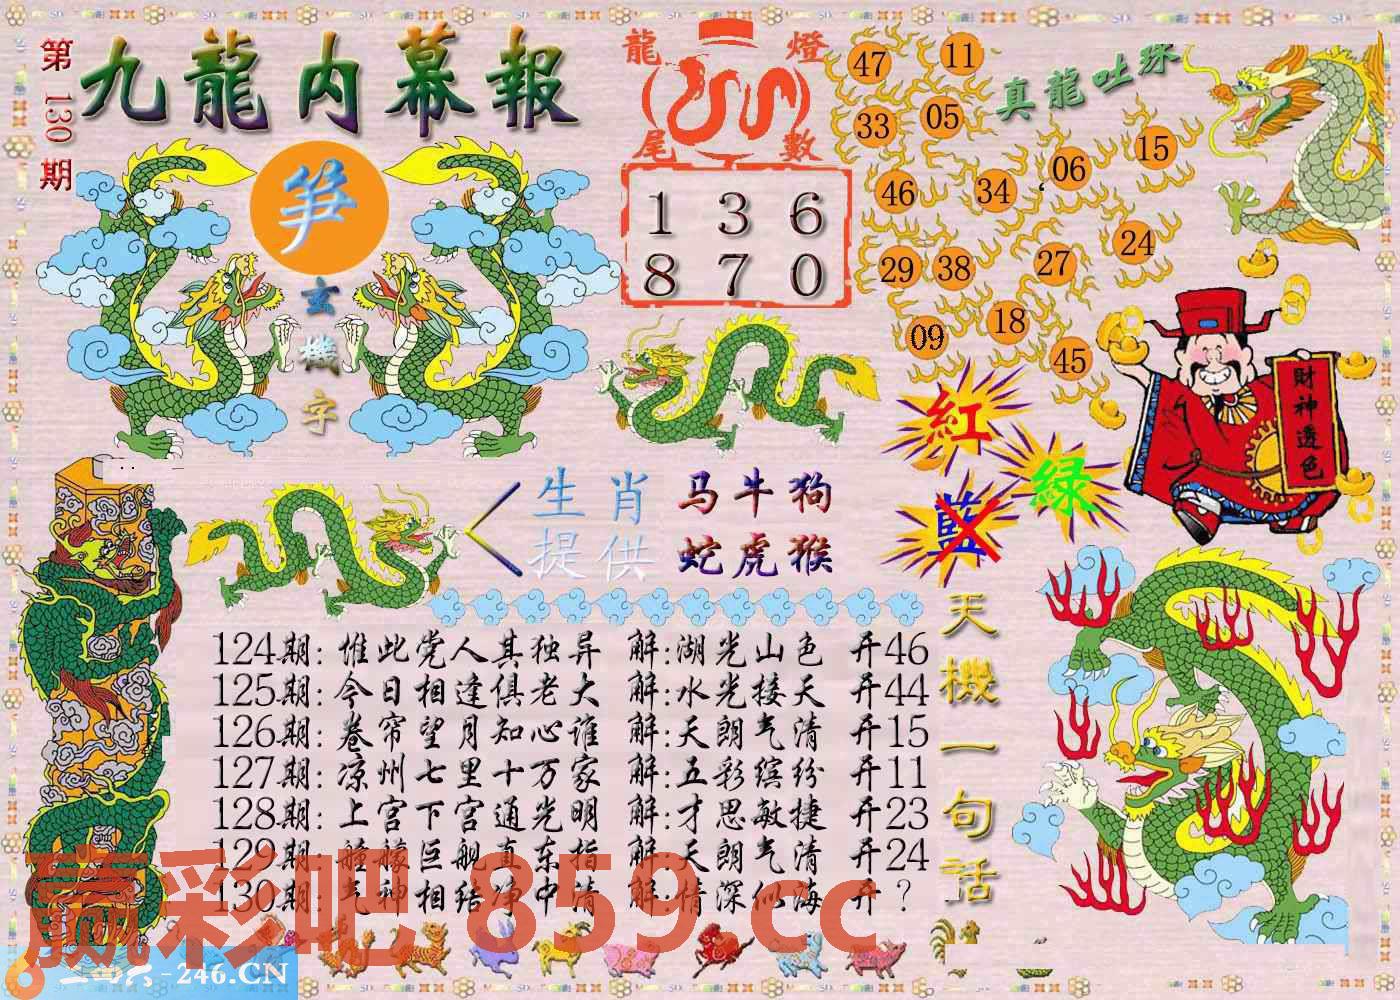 第130期
九龍内幕報
笋
玄機字
龍燈
尾數
1 3 6
8 7 0
真龍吐珠
47 11
33 05
46 34 06 15
29 38 27 24
09 18 45
財神透色
紅
绿
藍
生肖
提供
马牛狗
蛇虎猴
天機一句話
124期: 惟此党人其独异 解:湖光山色 开46
125期: 今日相逢俱老大 解:水光接天 开44
126期: 卷帘望月知心谁 解:天朗气清 开15
127期: 凉州七里十万家 解:五彩缤纷 开11
128期: 上宫下宫通光明 解:才思敏捷 开23
129期: 艟艨巨舰直东指 解:天朗气清 开24
130期: 气神相结净中清 解:情深似海 开?
赢彩吧 859.cc
-246.CN